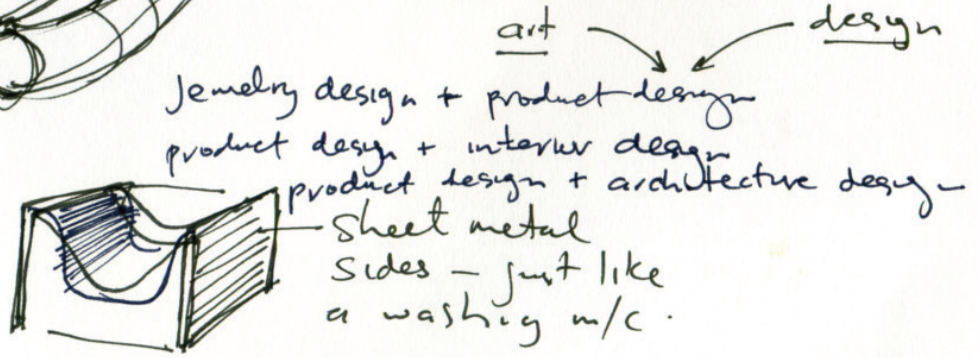 art design
Jewelry design + product design
product design + interior design
product design + architecture design
sheet metal
sides – just like
a washing m/c.